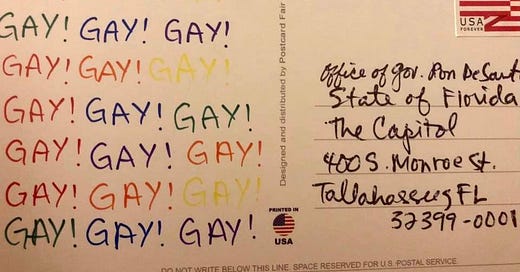 GAY! GAY! GAY!
GAY! GAY! GAY!
GAY! GAY! GAY!
GAY! GAY! GAY!
GAY! GAY! GAY!
GAY! GAY! GAY!
Designed and distributed by Postcard Fair
PRINTED IN
USA
USA
FOREVER
Office of Gov. Ron DeSant
State of Florida
The Capitol
400 S. Monroe St.
Tallahassee, FL
32399-0001
DO NOT WRITE BELOW THIS LINE. SPACE RESERVED FOR U.S. POSTAL SERVICE